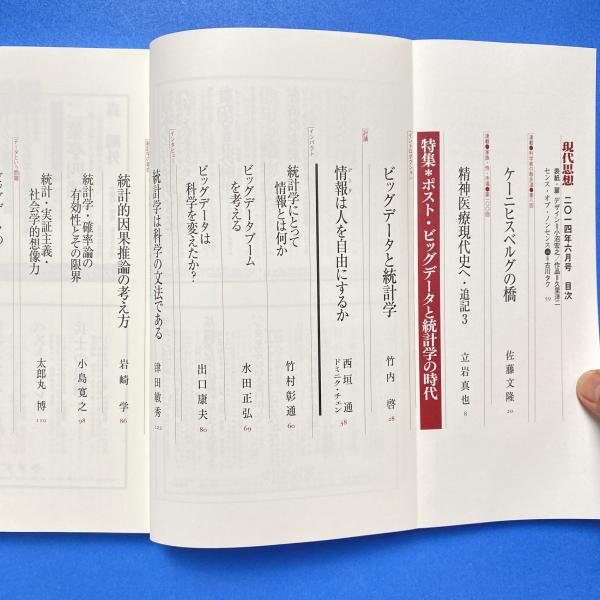 現代思想 二〇一四年六月号 目次
表紙・扉 デザイン＝今垣宏之／作品＝久里洋二
センス・オブ・ノンセンス＝古川タク
59
ケーニヒスベルグの橋
佐藤文隆
20
精神医療現代史へ・追記3
立岩真也
8
特集＊ポスト・ビッグデータと統計学の時代
イントロダクション
ビッグデータと統計学
竹内 啓
28
討議
情報は人を自由にするか
西垣 通
ドミニク・チェン
38
インパクト
統計学にとって
情報とは何か
竹村彰通
60
ビッグデータブーム
を考える
水田正弘
69
ビッグデータは
科学を変えたか？
出口康夫
80
インタビュー
統計学は科学の文法である
津田敏秀
122
統計的因果推論の考え方
岩崎 学
86
統計学・確率論の
有効性とその限界
小島寛之
98
統計・実証主義・
社会学的想像力
太郎丸 博
110
データという問題